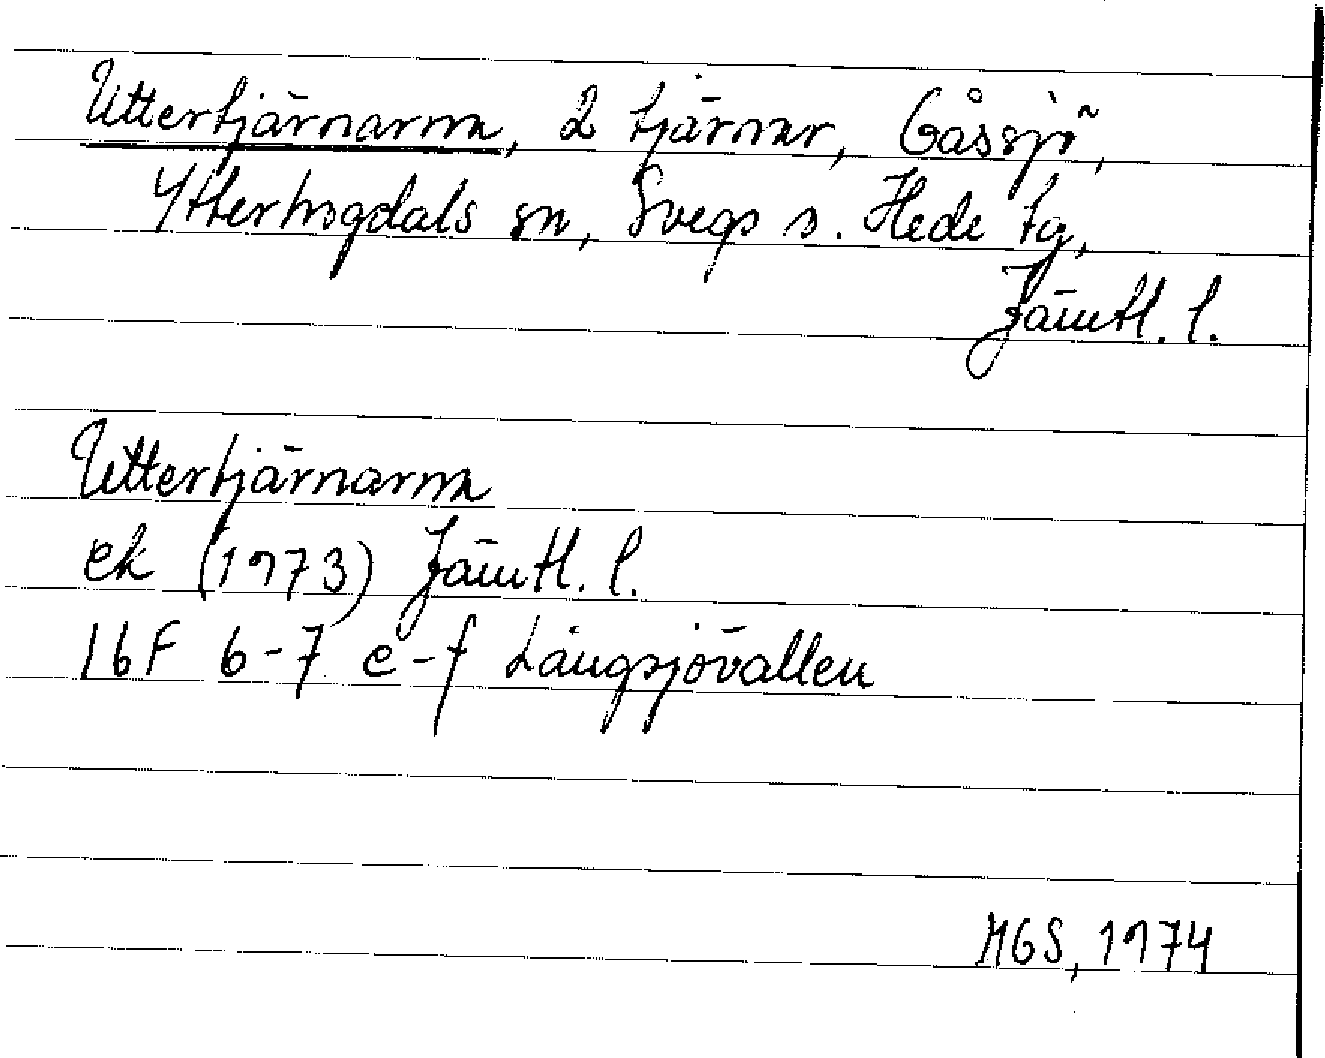 Uttertjärnarna, 2 tjärnar, Gåssjö,
Ytterhogdals sn, Svegs o. Hede tg,
Jämtl. l.
Uttertjärnarna
ek (1973) Jämtl. l.
16F 6-7 e-f Långsjövallen
MGS, 1974